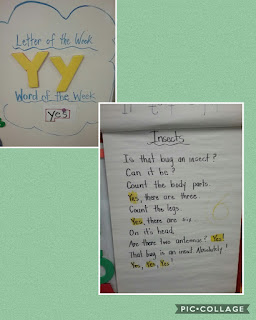 Letter of the Week
Yy
Word of the Week
yes
Insects
Is that bug an insect?
Can it be?
Count the body parts.
Yes, there are three.
Count the legs.
Yes, there are six.
On it's head,
Are there two antennae? Yes!
That bug is an insect. Absolutely!
Yes, Yes, Yes!
PIC•COLLAGE